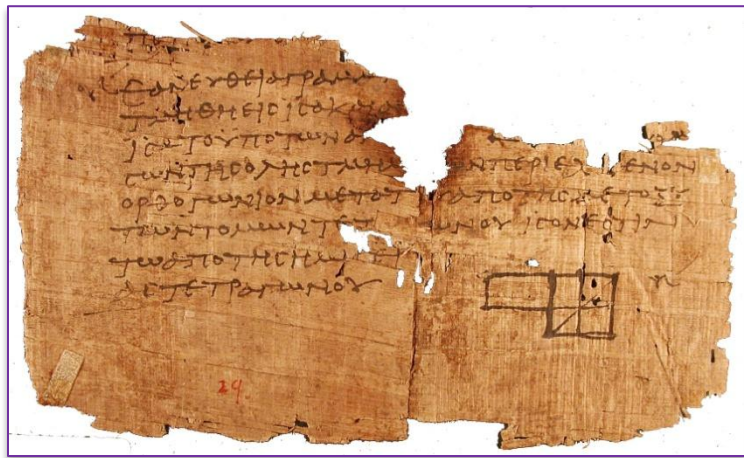 ΕΑΝΕΥΘΕΙΑΓΡΑΜΜ
ΤΜΗΘΗΕΙCΙCΑΚΑΙΑ
ΙCΑΤΟΥΠΟΤΩΝΑ
CΩΝΤΗCΟΛΗCΤΜΗΜ ΩΝΠΕΡΙΕΧ ΜΕΝΟΝ
ΟΡΘΟΓΩΝΙΟΝΜΕΤΟΤ ΑΠΟΤΗCΜΕΤΟΞΥ
ΤΩΝΤΟΜΩΝΤΕΤ ΩΝΟΥΙCΟΝΕCΤΙΝ
ΤΩΑΠΟΤΗCΗΜΙC
ΑCΤΕΤΡΑΓΩΝΟΥ
29.